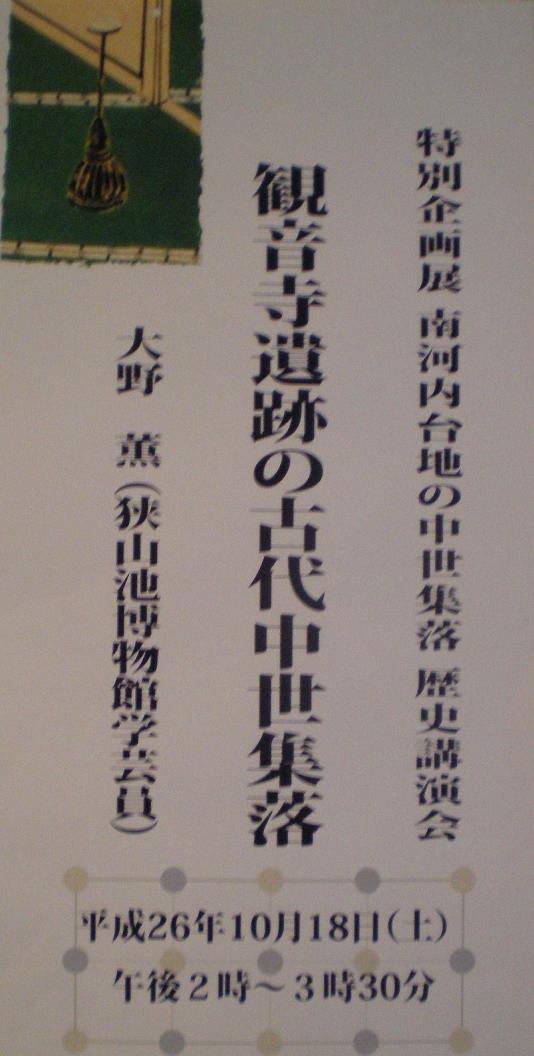 特別企画展 南河内台地の中世集落 歴史講演会
観音寺遺跡の古代中世集落
大野 薫（狭山池博物館学芸員）
平成26年10月18日（土）
午後2時～3時30分